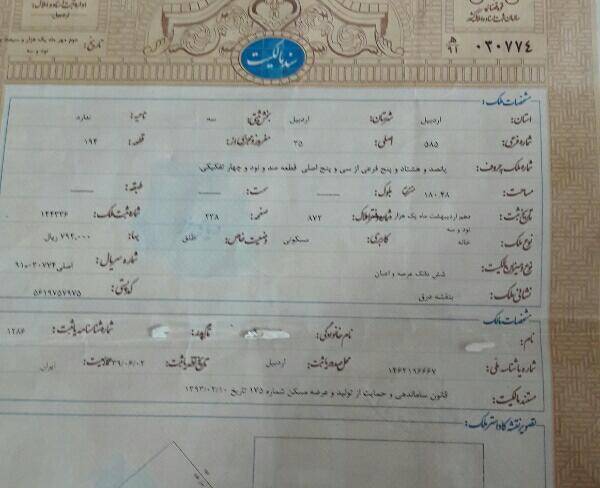 اردبیل
تاریخ: دوم مهر ماه یک هزار و سیصد
و نود و سه
سند مالکیت
۰۳۰۷۷۴ ۹۱
مشخصات ملک:
استان: اردبیل شهرستان: اردبیل بخش ثبتی: سه ناحیه: ندارد
شماره فرعی: ۵۸۵ اصلی: ۳۵ مفروز و مجزا از: قطعه: ۱۹۴
شماره ملک بحروف: پانصد و هشتاد و پنج فرعی از سی و پنج اصلی قطعه صد و نود و چهار تفکیکی
مساحت: ۱۸۰.۴۸ مترمربع بلوک: سمت: طبقه:
تاریخ ثبت: دهم اردیبهشت ماه یک هزار شماره دفتر املاک: ۸۷۲ صفحه: ۲۳۸ شماره ثبت ملک: ۱۴۴۳۳۶
نود و سه
نوع ملک: خانه کاربری: مسکونی وضعیت خاص: طلق بهاء: ۷۹۲,۰۰۰ ریال
نوع و میزان مالکیت: شش دانگ عرصه و اعیان شماره سریال: ۹۱-۰۳۰۷۷۴ اصلی
نشانی ملک: بنفشه درق کدپستی: ۵۶۱۹۷۵۷۹۷۵
مشخصات مالک:
نام: نام خانوادگی: نام پدر: شماره شناسنامه یا ثبت: ۱۲۸۶
شماره یا شناسه ملی: ۱۴۶۲۱۹۶۶۶۷ محل صدور یا ثبت: اردبیل تاریخ تولد یا ثبت: ۳۹/۰۶/۰۲ تابعیت: ایران
مستند مالکیت: قانون ساماندهی و حمایت از تولید و عرضه مسکن شماره ۱۷۵ تاریخ ۱۳۹۳/۰۲/۱۰
تصویر نقشه کاداستر ملک: